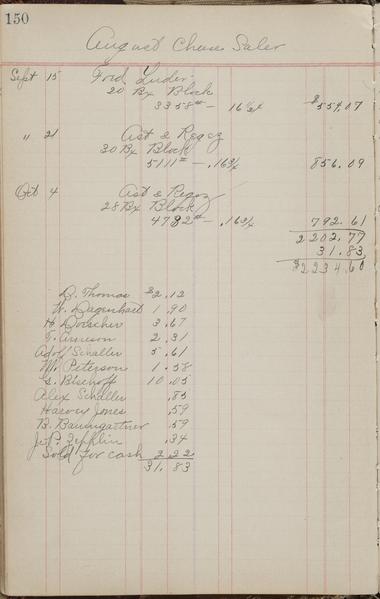 150
August Cheese Sales
Sept 15 Fred Luder
20 Bx Block
3358# - 16½ $554.07
" 21 Ast & Regez
30 Bx Block
5111# - .16¾ 856.09
Oct 4 Ast & Regez
28 Bx Block
4732# - .16¾ 792.61
2202.77
31.83
$2234.60
D. Thomas $2.12
W. Dagenhart 1.90
H. Doescher 3.67
T. Arneson 2.31
Adolf Schaller 5.61
M. Peterson 1.58
G. Bischoff 10.05
Alex Schaller .85
Harvey Jones .59
B. Baumgartner .59
J. P. Zepklin .34
Sold for cash 2.22
31.83